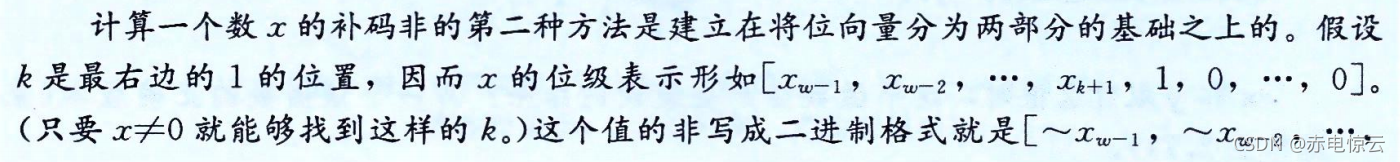 计算一个数 x 的补码非的第二种方法是建立在将位向量分为两部分的基础之上的。假设
k 是最右边的 1 的位置，因而 x 的位级表示形如[x_{w-1}，x_{w-2}，…，x_{k+1}，1，0，…，0]。
（只要 x≠0 就能够找到这样的 k。）这个值的非写成二进制格式就是[～x_{w-1}，～x_{w-2}，…，
CSDN @赤电惊云